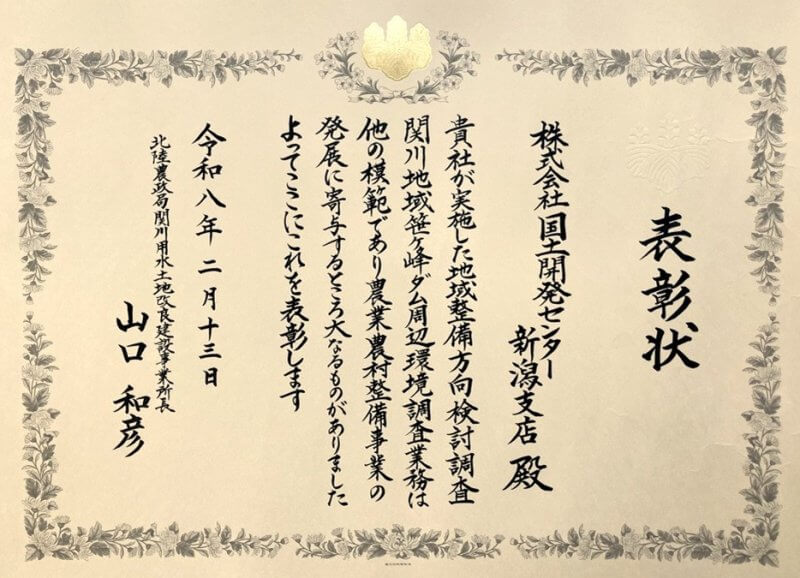 表彰状
株式会社国土開発センター
新潟支店 殿
貴社が実施した地域整備方向検討調査
関川地域笹ヶ峰ダム周辺環境調査業務は
他の模範であり農業農村整備事業の
発展に寄与するところ大なるものがありました
よってここにこれを表彰します
令和八年二月十三日
北陸農政局関川用水土地改良建設事業所長
山口 和彦